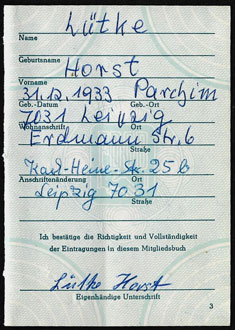 Lütke
Name
Geburtsname
Horst
Vorname
31.12.1933 Parchim
Geb.-Datum Geb.-Ort
7031 Leipzig
Wohnanschrift Ort
Erdmann Str. 6
Straße
Karl-Heine-Str. 25b
Anschriftenänderung Ort
Leipzig 7031
Straße
Ich bestätige die Richtigkeit und Vollständigkeit
der Eintragungen in diesem Mitgliedsbuch
Lütke Horst
Eigenhändige Unterschrift
3